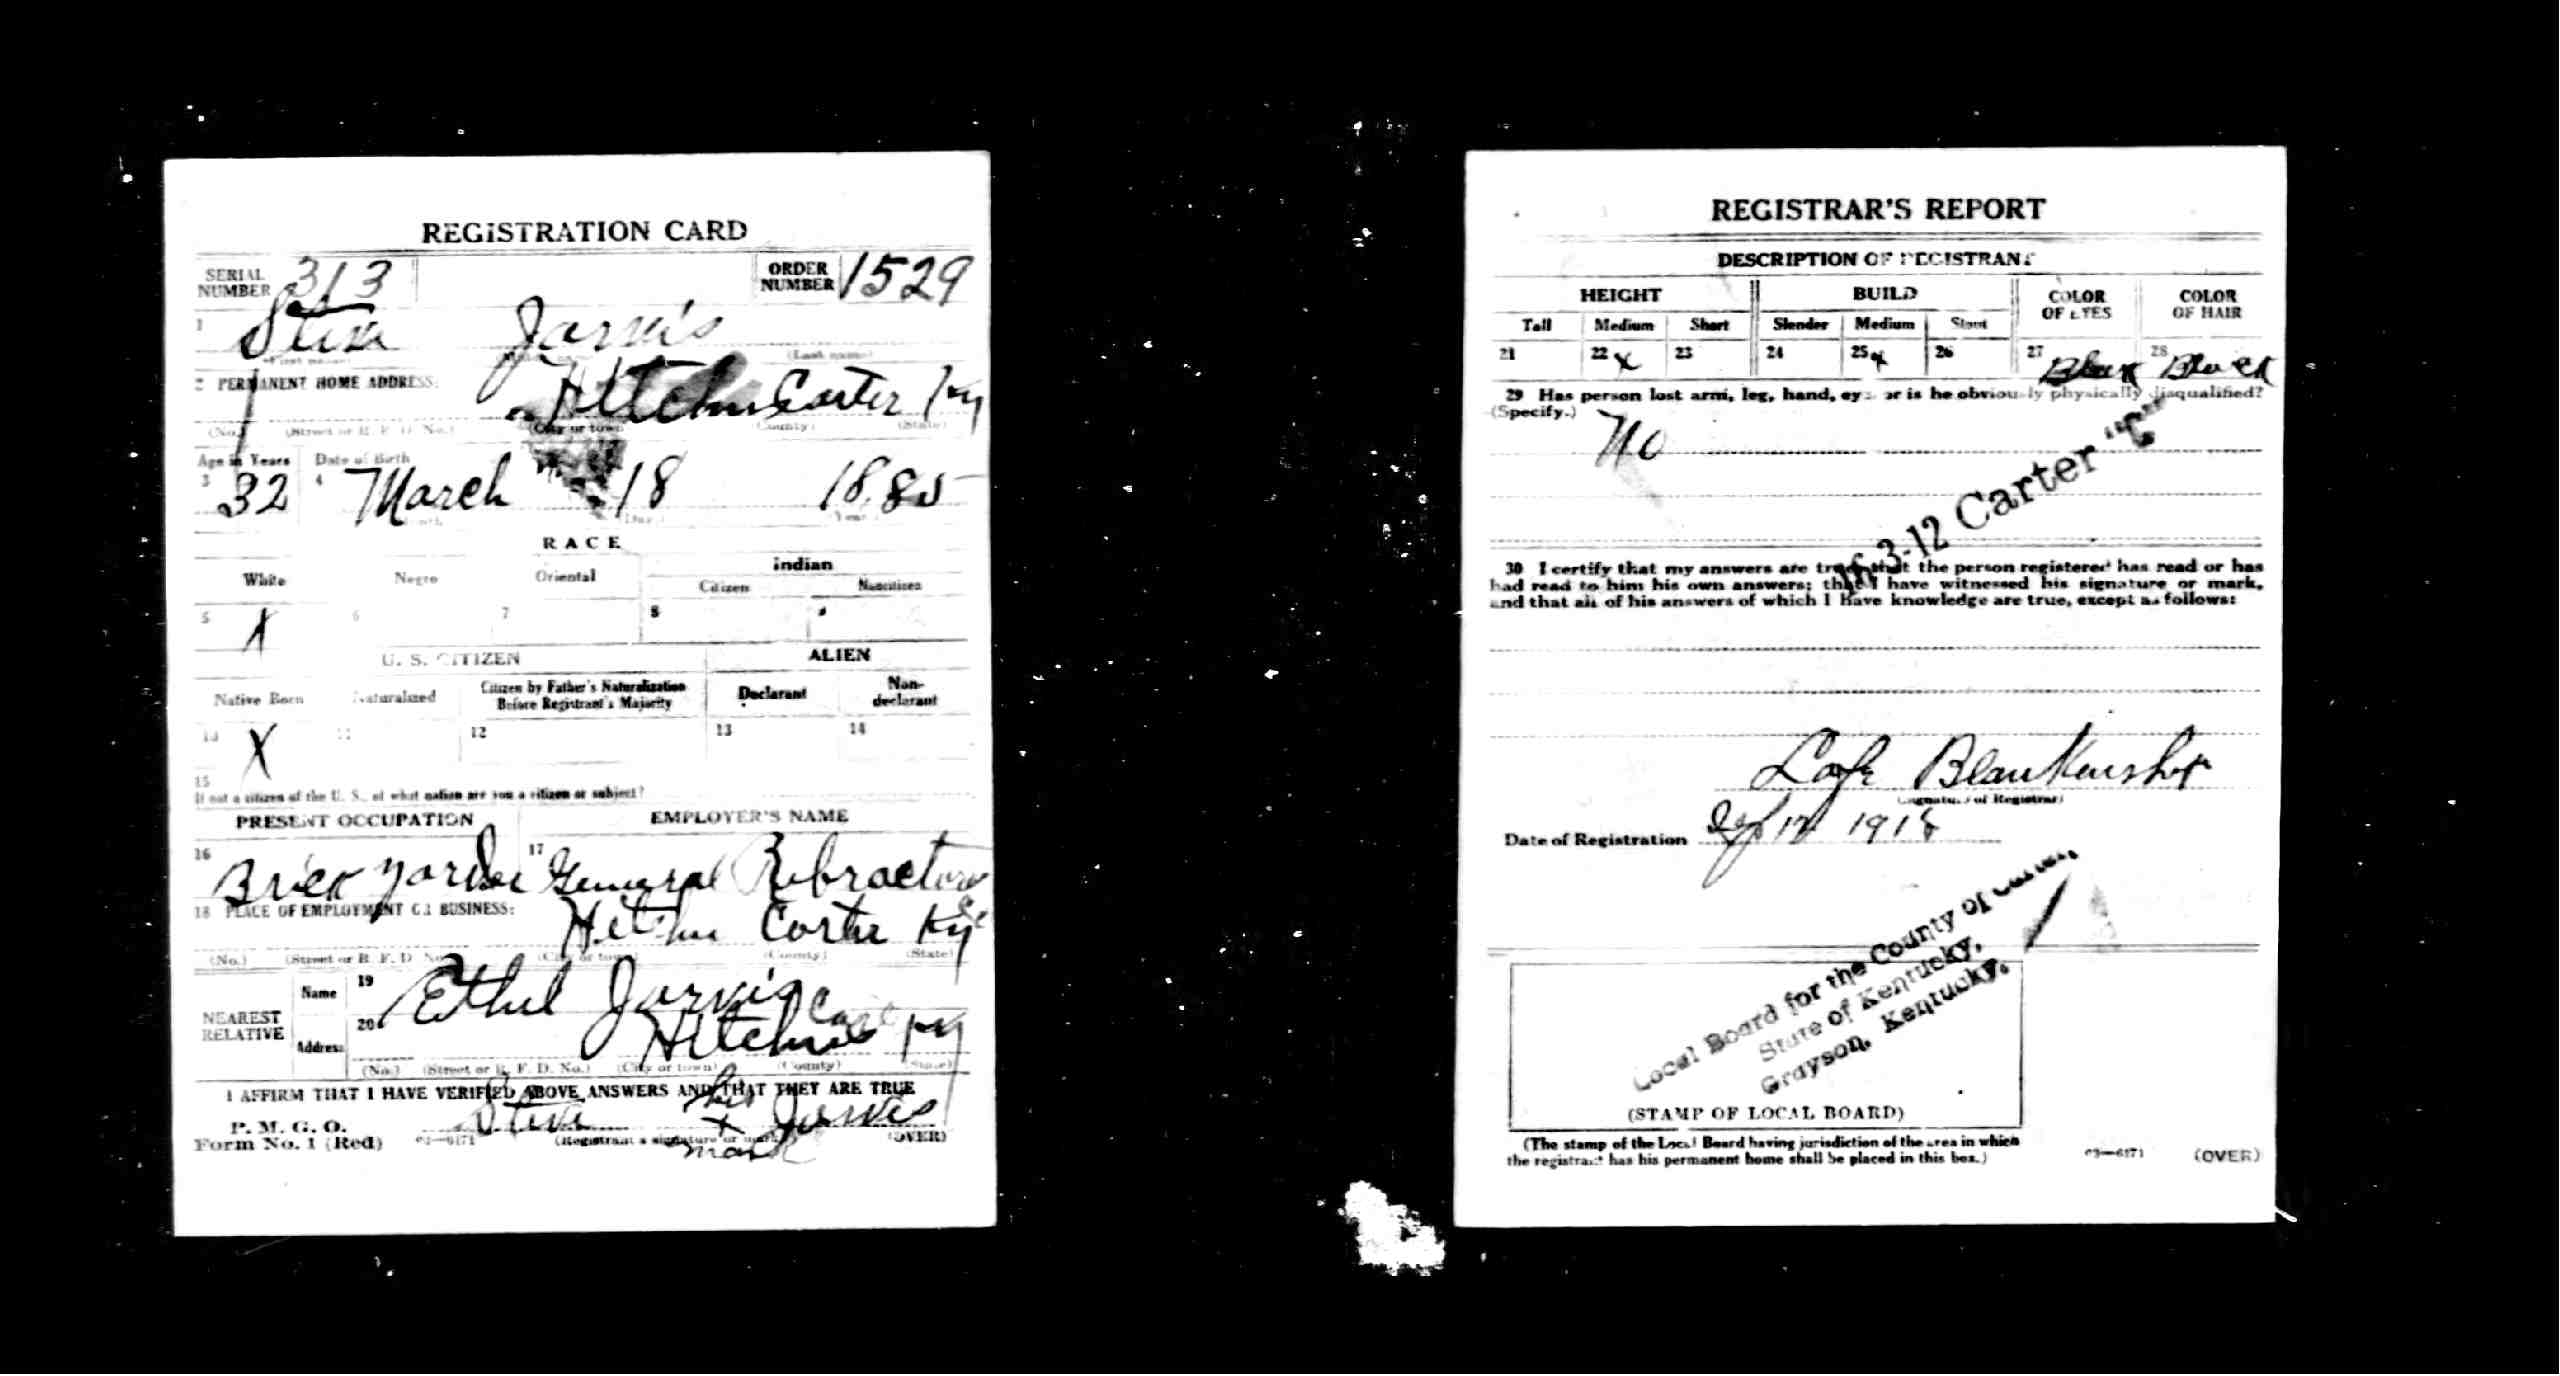 REGISTRATION CARD
SERIAL NUMBER 313 ORDER NUMBER 1529
1 Steve Jarvis
(First name) (Last name)
2 PERMANENT HOME ADDRESS:
Hitchins Carter Ky
(No.) (Street or R. F. D. No.) (City or town) (County) (State)
Age in Years Date of Birth
3 32 4 March 18 1885
(Month) (Day) (Year)
RACE
White Negro Oriental Indian
Citizen Noncitizen
5 X 6 7 8 9
U. S. CITIZEN ALIEN
Native Born Naturalized Citizen by Father's Naturalization Before Registrant's Majority Declarant Non-declarant
10 X 11 12 13 14
15
If not a citizen of the U. S., of what nation are you a citizen or subject?
PRESENT OCCUPATION EMPLOYER'S NAME
16 Brick yarder 17 General Rebractory
18 PLACE OF EMPLOYMENT OR BUSINESS: Co
Hitchin Carter Ky
(No.) (Street or R. F. D. No.) (City or town) (County) (State)
NEAREST RELATIVE
Name 19 Ethel Jarvis
Address 20 Hitchins Ky
(No.) (Street or R. F. D. No.) (City or town) (County) (State)
I AFFIRM THAT I HAVE VERIFIED ABOVE ANSWERS AND THAT THEY ARE TRUE
P. M. G. O.
Form No. 1 (Red) 03—6171 Steve his x mark Jarvis
(Registrant's signature or mark) (OVER)
REGISTRAR'S REPORT
DESCRIPTION OF REGISTRANT
HEIGHT BUILD COLOR OF EYES COLOR OF HAIR
Tall Medium Short Slender Medium Stout
21 22 x 23 24 25 x 26 27 Black 28 Black
29 Has person lost arm, leg, hand, eye, or is he obviously physically disqualified?
(Specify.) No
16-3-12 Carter "C"
30 I certify that my answers are true; that the person registered has read or has
had read to him his own answers; that I have witnessed his signature or mark,
and that all of his answers of which I have knowledge are true, except as follows:
Lafe Blankenship
(Signature of Registrar)
Date of Registration Sep 12 1918
Local Board for the County of Carter,
State of Kentucky,
Grayson, Kentucky.
(STAMP OF LOCAL BOARD)
(The stamp of the Local Board having jurisdiction of the area in which
the registrant has his permanent home shall be placed in this box.)
03—6171 (OVER)